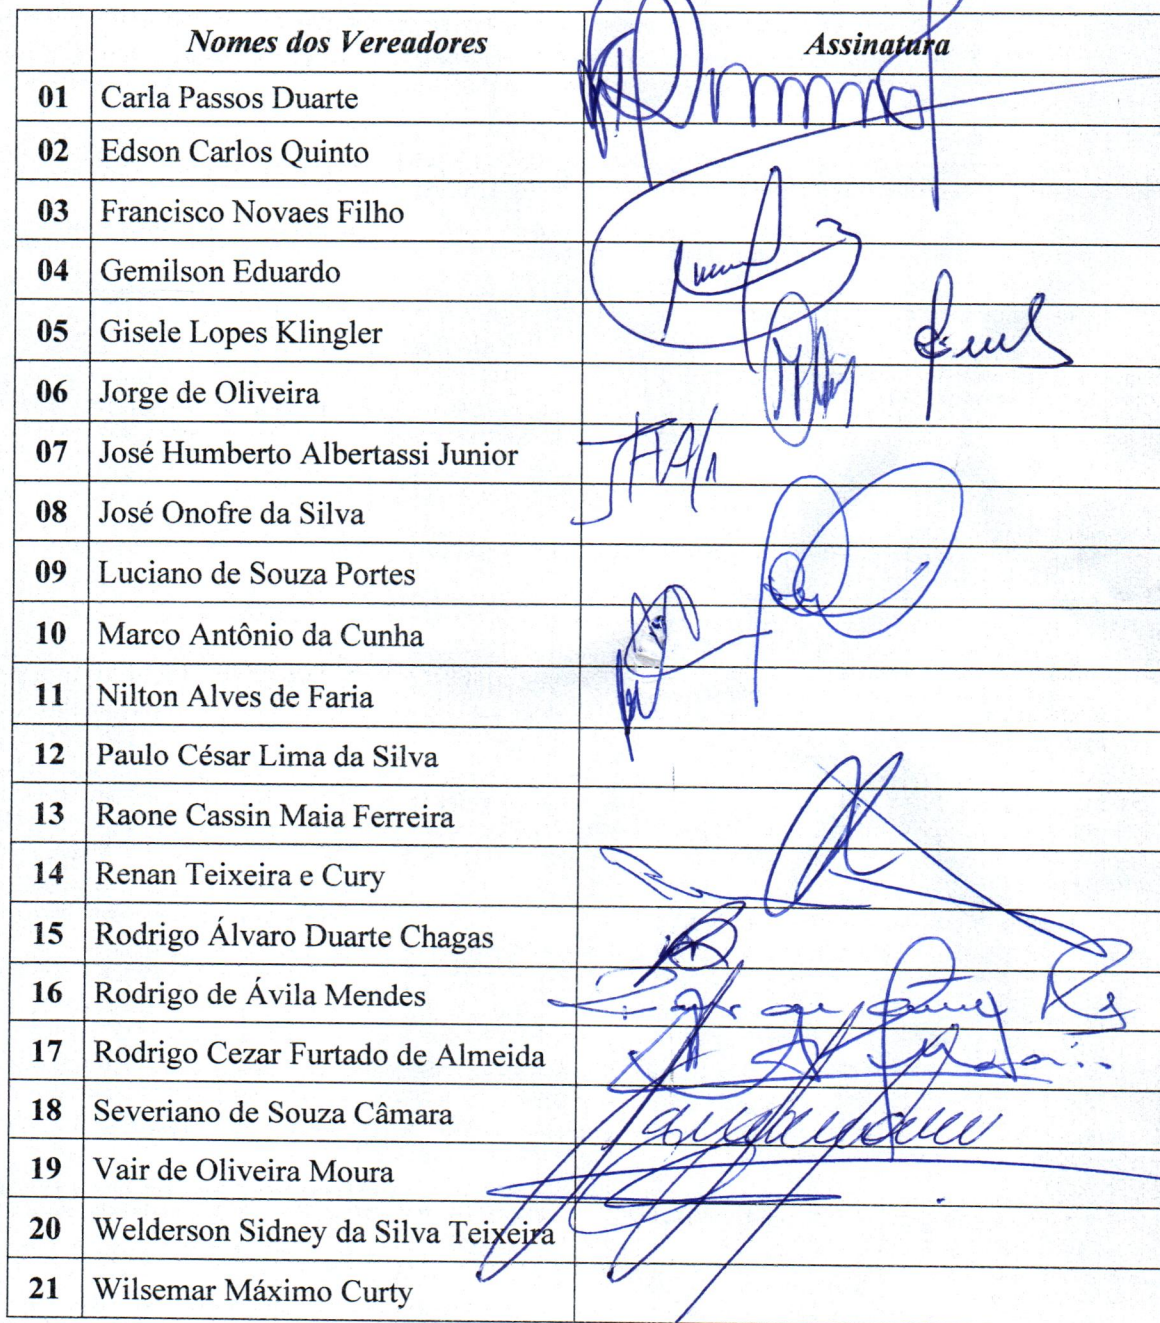 Nomes dos Vereadores Assinatura
01 Carla Passos Duarte
02 Edson Carlos Quinto
03 Francisco Novaes Filho
04 Gemilson Eduardo
05 Gisele Lopes Klingler
06 Jorge de Oliveira
07 José Humberto Albertassi Junior
08 José Onofre da Silva
09 Luciano de Souza Portes
10 Marco Antônio da Cunha
11 Nilton Alves de Faria
12 Paulo César Lima da Silva
13 Raone Cassin Maia Ferreira
14 Renan Teixeira e Cury
15 Rodrigo Álvaro Duarte Chagas
16 Rodrigo de Ávila Mendes
17 Rodrigo Cezar Furtado de Almeida
18 Severiano de Souza Câmara
19 Vair de Oliveira Moura
20 Welderson Sidney da Silva Teixeira
21 Wilsemar Máximo Curty